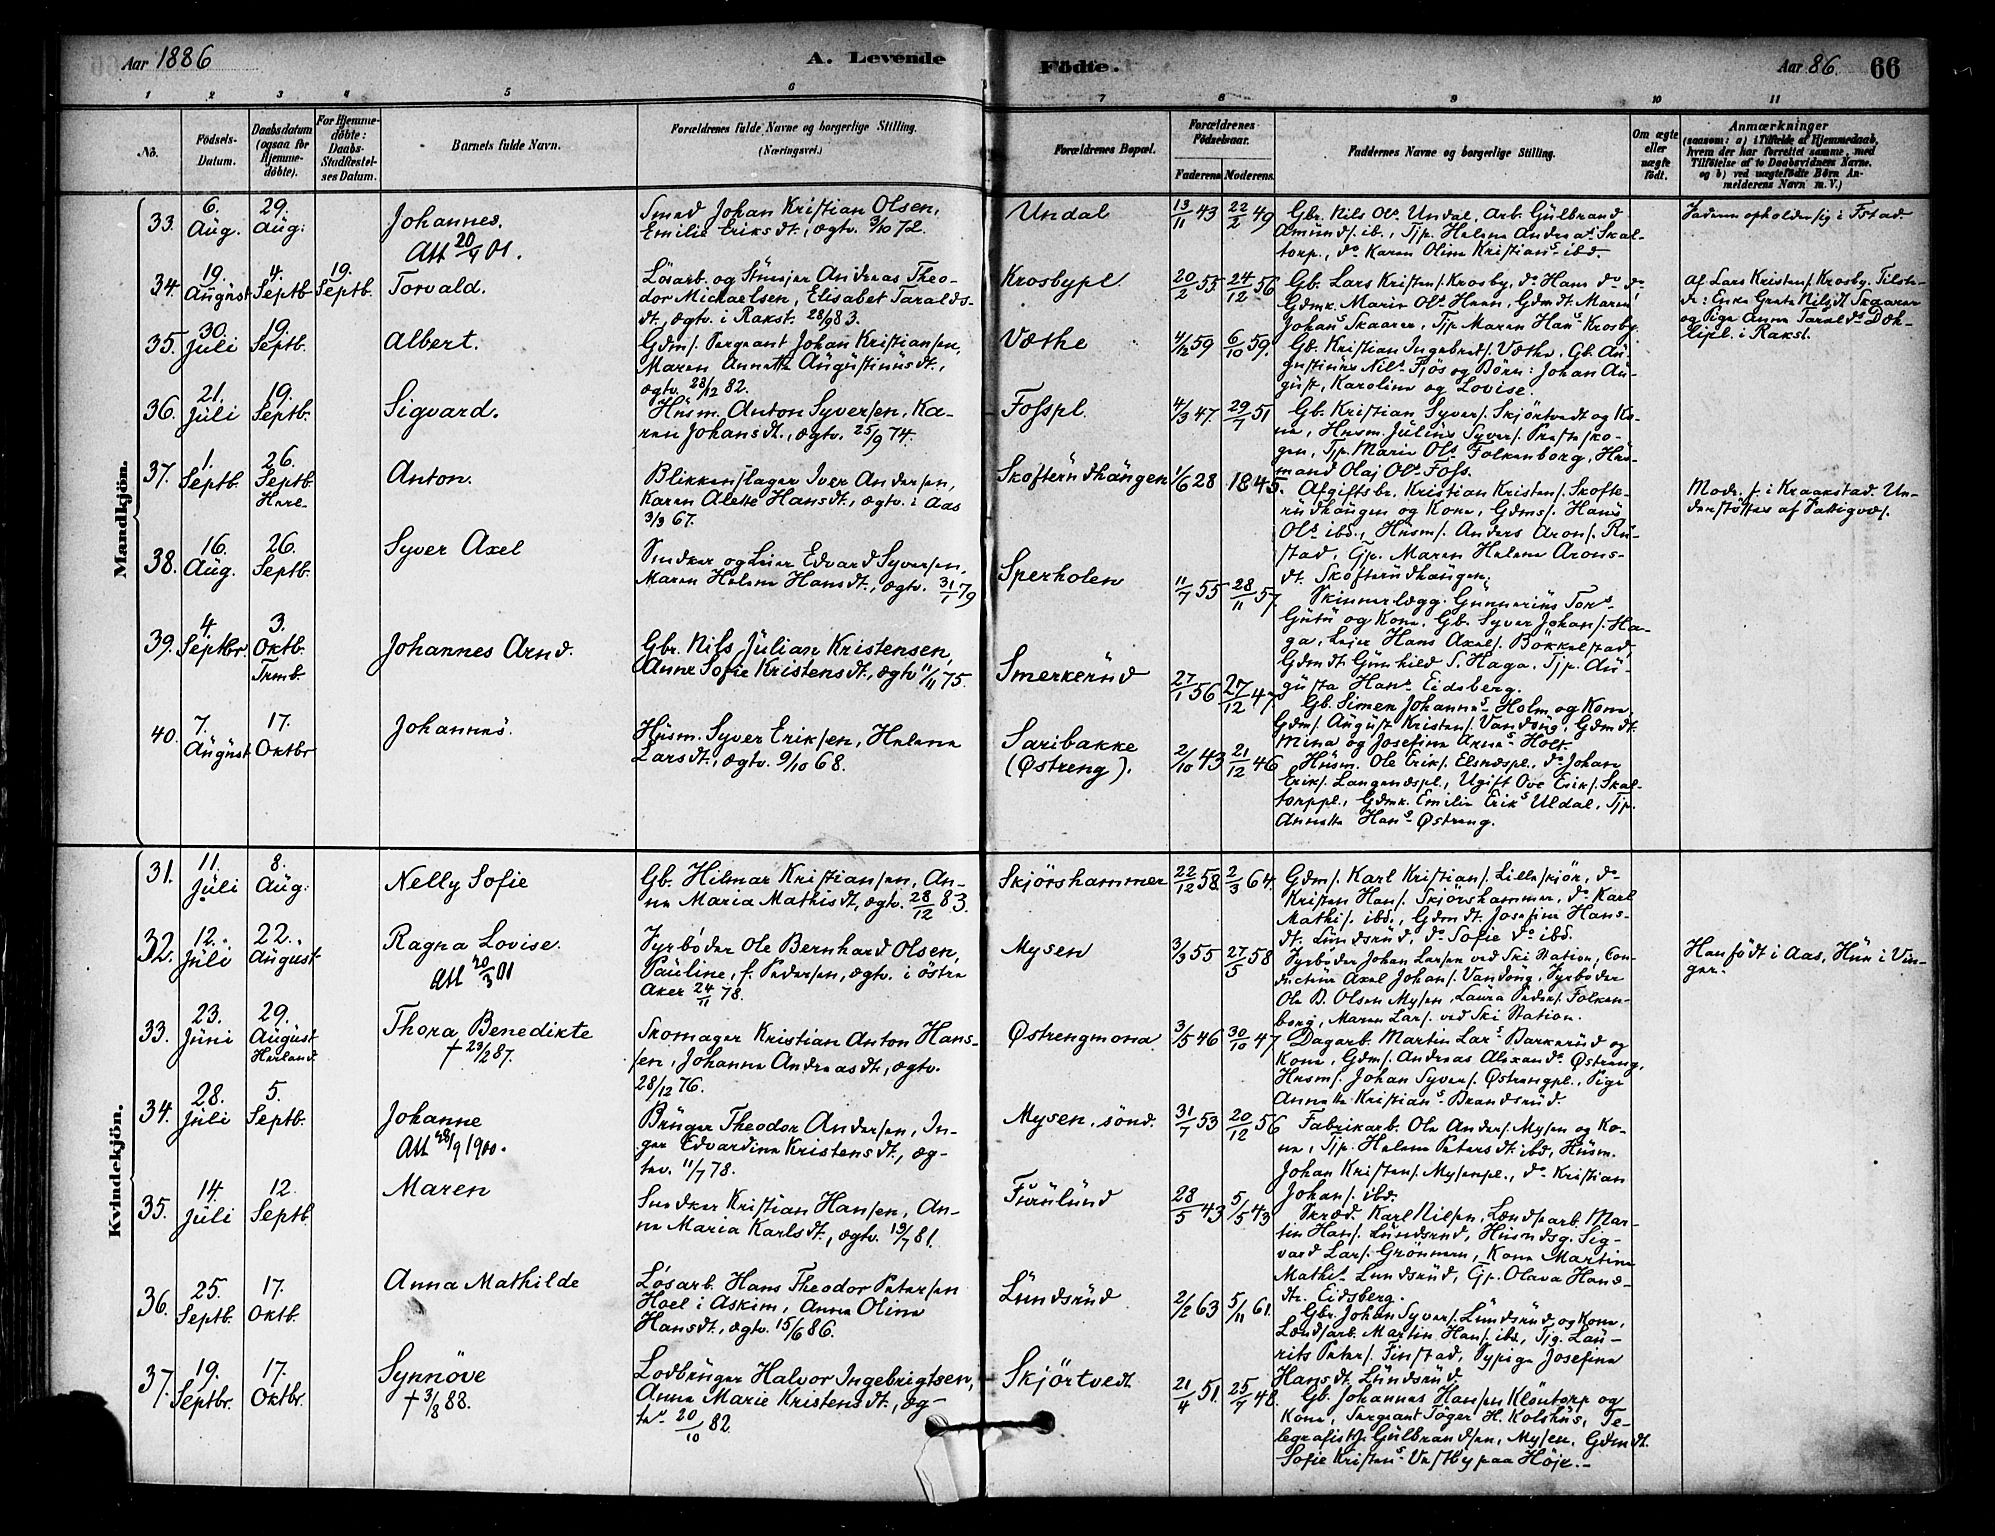 Aar 1886
A. Levende
Födte.
Aar 86.
66
1 2 3 4 5 6
7 8 9 10 11
No.
Födsels-
Datum.
Daabsdatum
(ogsaa for
Hjemme-
döbte).
For Hjemme-
döbte:
Daabs-
Stadfæstel-
ses Datum.
Barnets fulde Navn.
Forældrenes fulde Navne og borgerlige Stilling.
(Næringsvei.)
Forældrenes Bopæl.
Forældrenes
Födselsaar.
Faderens
Moderens.
Faddernes Navne og borgerlige Stilling.
Om ægte
eller
uægte
födt.
Anmærkninger
(saasom: a) i Tilfælde af Hjemmedaab,
hvem der har forrettet samme, med
Tilföielse af to Daabsvidners Navne.
og b) ved uægtefödte Börn An-
melderens Navn m. V.)
Mandkjön.
33.
6.
Aug.
29.
Aug:
Johannes.
Att 20/9 01.
Smed Johan Kristian Olsen,
Emilie Eriksdt., ægtv. 3/10 72.
Undal
13/11 43
22/2 49
Gbr. Nils Ols. Undal, Arb. Gülbrand
Amünds. ib., Tjp. Helene Andreas. Skal-
torp., do Karen Oline Kristians. ibd.
Faderen opholder sig i Fstad
34.
19.
August
4.
Septb
19.
Septb.
Torvald.
Lösarb. og Stüesjer Andreas Theo-
dor Michaelsen, Elisabet Taralds-
dt., ægtv. i Rakst. 28/9 83.
Krosbypl.
20/2 55
24/12 56
Gb. Lars Kristens. Krosby, do Hans do do
Gdmk. Marie Ols. Heen, Gdmdt. Maren
Johans. Skaarer, Tjp Maren Hans. Krosby.
Af Lars Kristens. Krosby. Tilste-
de: Enke Grete Nilsdt. Skaarer
og Pige Anna Taralds. Dæh-
lipl. i Rakst.
35.
30.
Juli
19.
Septb.
Albert.
Gdms. Sergeant Johan Kristiansen,
Maren Annette Augüstinüsdt.,
ægtv. 28/12 82.
Væthe
4/12 59
6/10 59.
Gb. Kristian Ingebrets. Væthe, Gb. Aü-
gustinus Nils. Fjös og Börn: Johan Aü-
güst, Karoline og Lovise.
36.
21.
Juli
19.
Septb.
Sigvard.
Hüsm. Anton Syversen, Ka-
ren Johansdt., ægtv. 25/9 74.
Fosspl.
4/3 47.
29/7 51
Gb. Kristian Syvers. Skjörtvedt og Ko-
ne, Husm. Julius Syvers. Presteskо-
gen, Tjp. Marie Ols. Folkenborg, Hüs-
mand Olaj Ols. Foss.
37.
1.
Septb.
26.
Septb.
Herl.
Anton.
Blikkenslager Iver Andersen,
Karen Alette Hansdt., ægtv. i Aas
3/3 67.
Skofterüdhangen
1/6 28
1845.
Afgiftsbr. Kristian Kristens. Skofte-
rüdhangen og Kone, Gdms. Hans
Ols. ibd., Hüsm. Anders Arons. Rü-
stad, Tjp. Maren Helene Arons-
dt. Skofterüdhangen.
Modr. f. i Kraakstad. Un-
derstöttes af Fattigvæs.
38.
16.
Aug.
26.
Septb.
Syver Axel
Snedker og Leier Edvard Syversen,
Maren Helene Hansdt., ægtv. 31/1 79
Sperholen
11/7 55
28/11 57.
Skinnerlægg. Günnerius Tors.
Gutu og Kone, Gb. Syver Johans. Ha-
ga, Leier Hans Axels. Bökkelstad,
Gdmdt. Günhild S. Haga, Tjp. Aü-
güsta Hans. Eidsberg.
39.
4
Septbr.
3.
Oktb.
Trmb.
Johannes Arnd.
Gbr. Nils Jülian Kristensen,
Anne Sofie Kristensdt., ægtv 11/11 75.
Smerkerüd
27/1 56
27/12 47
Gb. Simen Johannes. Holm og Kone,
Gdms. August Kristens. Vandüg, Gdmdt.
Mina og Josefine Arnes. Holt.
40.
7.
Augüst
17.
Oktbr
Johannes.
Hüsm. Syver Eriksen, Helene
Larsdt., ægtv. 9/10 68.
Saribakke
(Østreng).
2/10 43
21/12 46
Hüsm. Ole Eriks. Elsnæspl., do Johan
Eriks. Langenæspl., Ugift Ove Eriks. Skal-
torppl., Gdmk. Emilie Eriks. Uldal, Tjp.
Annette Hans. Østreng.
Kvindekjön.
31.
11.
Juli
8.
Aug:
Nelly Sofie
Gb. Hilmar Kristiansen, An-
ne Maria Mathisdt, ægtv. 28/12 83.
Skjörshammer
22/12 58.
2/3 64.
Gdms. Karl Kristians. Lilleskjör, do
Kristen Hans. Skjörshammer, do Karl
Mathis. ibd., Gdmdt. Josefine Hans-
dt. Lundsrüd, do Sofie do ibd.
32.
12.
Juli
22.
August
Ragna Lovise.
Att 20/3 01
Fyrböder Ole Bernhard Olsen,
Pauline, f. Pedersen, ægtv. i östre
Aker 24/11 78.
Mysen
3/9 55
27/5 58
Fyrböder Johan Larsen ved Ski Station, Con-
ducteur Axel Johans. Vandüg, Fyrböder
Ole B. Olsen Mysen, Laura Peders. Folken-
borg, Maren Lars. ved Ski Station.
Han född i Aas, Hün i Vin-
ger.
33.
23.
Juni
29.
August
Herland
Thora Benedikte
† 23/2 87.
Skomager Kristian Anton Hans-
sen, Johanne Andreasdt., ægtv.
28/12 76.
Østrengmona
3/5 46
30/10 47
Dagarb. Martin Lars. Barkerüd og
Kone, Gdms. Andreas Alexands. Østreng,
Husm. Johan Syvers. Østrengpl., Pige
Annette Kristians. Brandsrüd.
34.
28.
Juli
5.
Septb.
Johanne
Att 28/9 1900.
Brüger Theodor Andersen, In-
ger Edvardine Kristensdt., æg-
tev. 11/7 78.
Mysen, sönd.
31/7 53
20/12 56
Fabrikarb. Ole Anders. Mysen og Ko-
ne, Tjp. Helene Petersdt. ibd, Hüsm.
Johan Kristens. Mysenpl., do Kristian
Johans. ibd.
35.
14.
Juli
12.
Septb.
Maren
Snedker Kristian Hansen, An-
ne Maria Karlsdt., ægtv. 19/7 81.
Furulund
28/5 43
5/5 43
Skræd. Karl Nilsen, Landsarb. Mar-
tin Hans. Lundsrud, Hüsmdsg. Sig-
vard Lars. Grönmen, Kone Martine
Mathis. Lundsrüd, Tjp. Olava Hans-
dtr. Eidsberg.
36.
25.
Septb.
17.
Oktb.
Anna Mathilde
Lösarb. Hans Theodor Petersen
Hoel i Askim, Anne Oline
Hansdt., ægtv. 15/6 86.
Lündsrüd
2/2 63
5/11 61.
Gbr. Johan Syvers. Lündsrüd og Kone,
Landsarb. Martin Hans. ibd, Tjg. Lau-
rits Peters. Finstad, Sypige Josefine
Hansdt. Lündsrüd.
37.
19.
Septbr.
17.
Oktbr.
Synnöve
† 3/8 88.
Lodbrüger Halvor Ingebrigtsen,
Anne Marie Kristensdt., æg-
tv. 20/10 82.
Skjörtvedt
21/4 51.
25/7 48.
Gb. Johannes Hansen Klöntorp og
Kone, Sergeant Töger H. Kolshüs, Te-
legrafist J. Gülbrandsen, Mysen, Gdmdt.
Sofie Kristens. Vestby paa Höje.